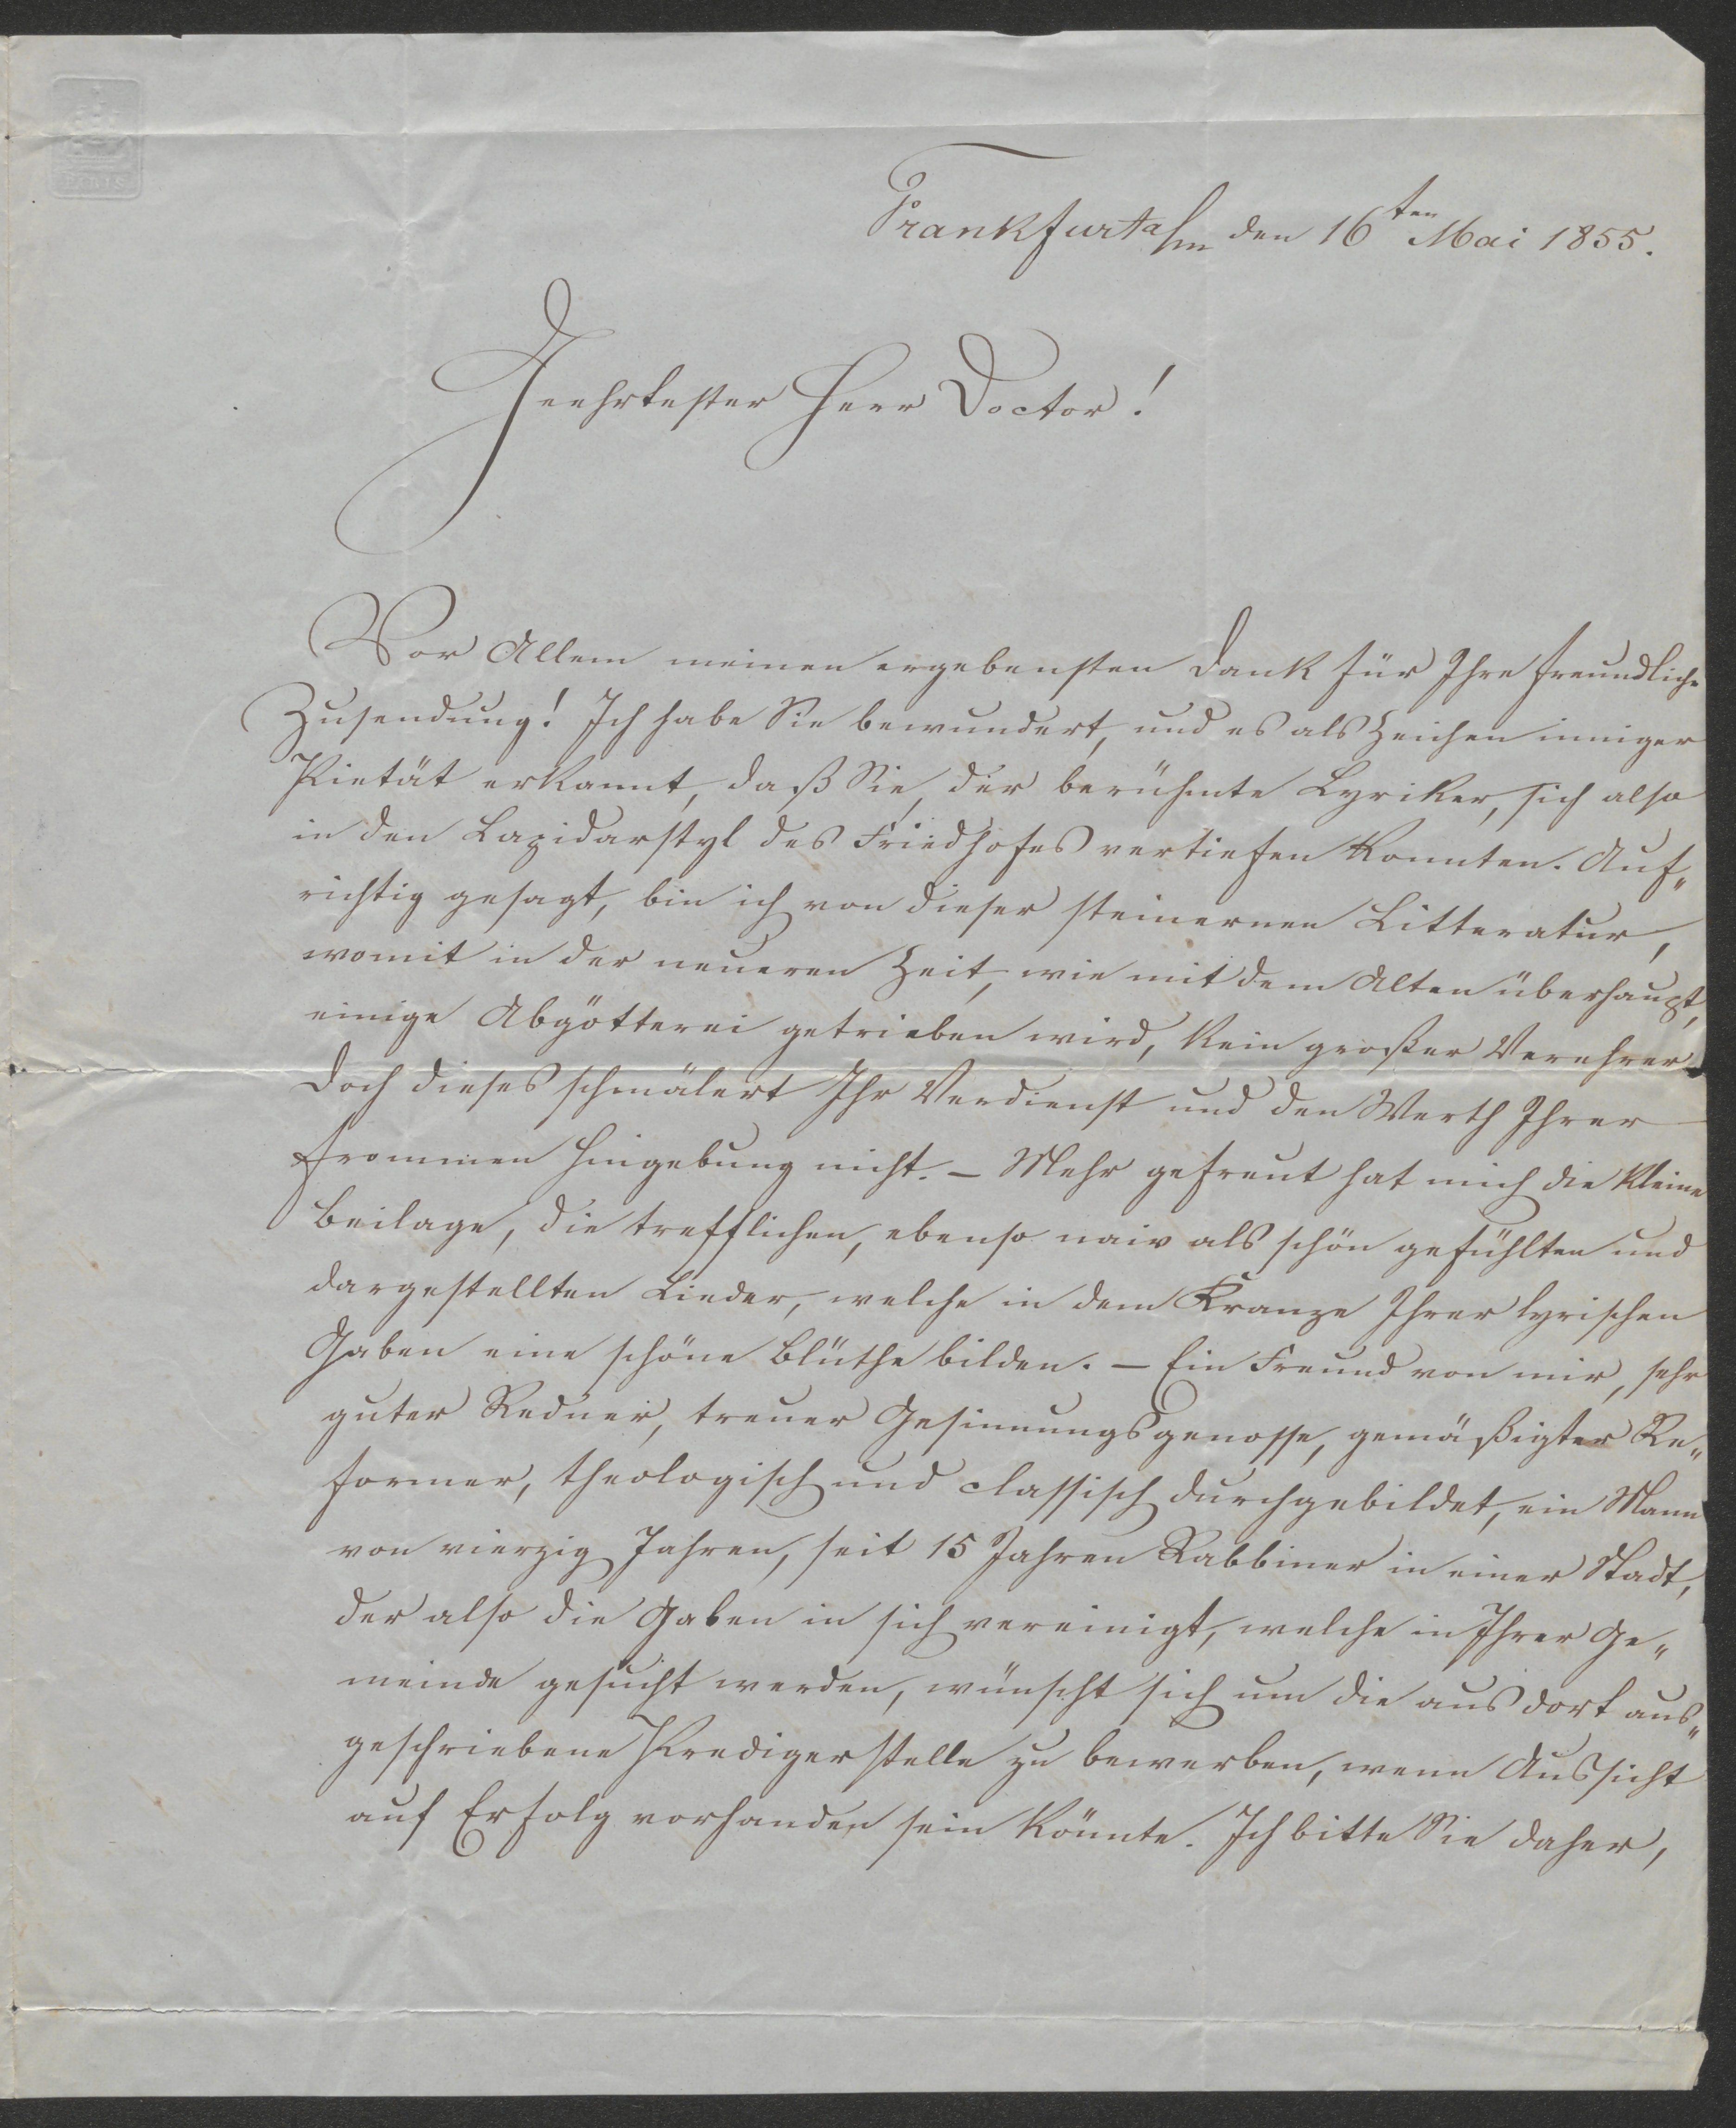 PARIS
Frankfurt a/m den 16ten Mai 1855.
Geehrtester Herr Doctor!
Vor Allem meinen ergebensten Dank für Ihre freundliche
Zusendung! Ich habe Sie bewundert, und es als Zeichen inniger
Pietät erkannt, daß Sie, der berühmte Lyriker, sich also
in den Lapidarstyl des Friedhofes vertiefen konnten. Auf„
richtig gesagt, bin ich von dieser steinernen Litteratur,
womit in der neueren Zeit, wie mit dem Alten überhaupt,
einige Abgötterei getrieben wird, kein großer Verehrer.
Doch dieses schmälert Ihr Verdienst und den Werth Ihrer
frommen Hingebung nicht. – Mehr gefreut hat mich die kleine
Beilage, die trefflichen, ebenso naiv als schön gefühlten und
dargestellten Lieder, welche in dem Kranze Ihrer lyrischen
Gaben eine schöne Blüthe bilden. – Ein Freund von mir, sehr
guter Redner, treuer Gesinnungsgenosse, gemäßigter Re„
former, theologisch und classisch durchgebildet, ein Mann
von vierzig Jahren, seit 15 Jahren Rabbiner in einer Stadt,
der also die Gaben in sich vereinigt, welche in Ihrer Ge„
meinde gesucht werden, wünscht sich um die aus dort aus„
geschriebene Predigerstelle zu bewerben, wenn Aussicht
auf Erfolg vorhanden sein könnte. Ich bitte Sie daher,